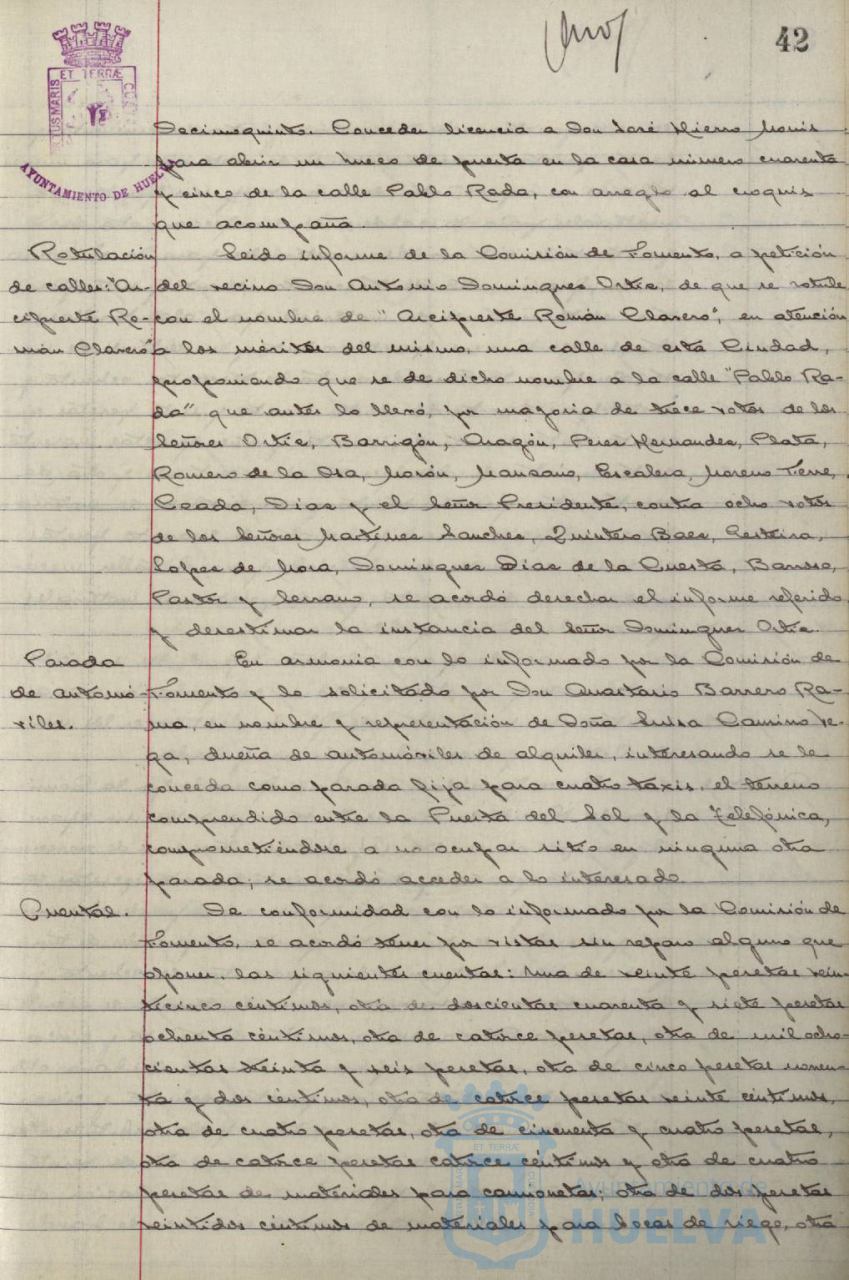 42
ET TERRÆ
AYUNTAMIENTO DE HUELVA
Decimoquinto. Conceder licencia a Don José Hierro
para abrir un hueco de puerta en la casa número cuarenta
y cinco de la calle Pablo Rada, con arreglo al croquis
que acompaña.
Rotulación
de calles: "Ar-
cipreste Ro-
mán Clavero"
Leido informe de la Comisión de Fomento, a petición
del vecino Don Antonio Dominguez Ortiz, de que se rotule
con el nombre de "Arcipreste Román Clavero", en atención
a los méritos del mismo, una calle de esta Ciudad,
proponiendo que se de dicho nombre a la calle "Pablo Ra-
da" que antes lo llevó, por mayoria de trece votos de los
Señores Ortiz, Barrigón, Aragón, Perez Hernandez, Plata,
Romero de la Osa, Morón, Manzano, Escalera, Moreno
Ceada, Diaz y el Señor Presidente, contra ocho votos
de los Señores Martinez Sanchez, Quintero Baez,
Lopez de Mora, Dominguez Diaz de la Cuesta, Barroso,
Pastor y Serrano, se acordó desechar el informe referido
y desestimar la instancia del Señor Dominguez Ortiz.
Parada
de automó-
viles.
En armonia con lo informado por la Comisión de
Fomento y lo solicitado por Don Anastasio Barrero Ra-
ma, en nombre y representación de Doña Luisa Camino Ve-
ga, dueña de automóviles de alquiler, interesando se le
conceda como parada fija para cuatro taxis, el terreno
comprendido entre la Puerta del Sol y la Telefónica,
comprometiéndose a no ocupar sitio en ninguna otra
parada; se acordó acceder a lo interesado
Cuentas.
De conformidad con lo informado por la Comisión de
Fomento, se acordó tener por vistas sin reparo alguno que
oponer, las siguientes cuentas: una de veinte pesetas vein-
ticinco céntimos, otra de doscientas cuarenta y siete pesetas
ochenta céntimos, otra de catorce pesetas, otra de mil ocho-
cientas treinta y seis pesetas, otra de cinco pesetas noven-
ta y dos céntimos, otra de catorce pesetas veinte céntimos,
otra de cuatro pesetas, otra de cincuenta y cuatro pesetas,
otra de catorce pesetas catorce céntimos y otra de cuatro
pesetas de materiales para camionetas; otra de dos pesetas
veintidos céntimos de materiales para bocas de riego, otra
Ayuntamiento de
HUELVA